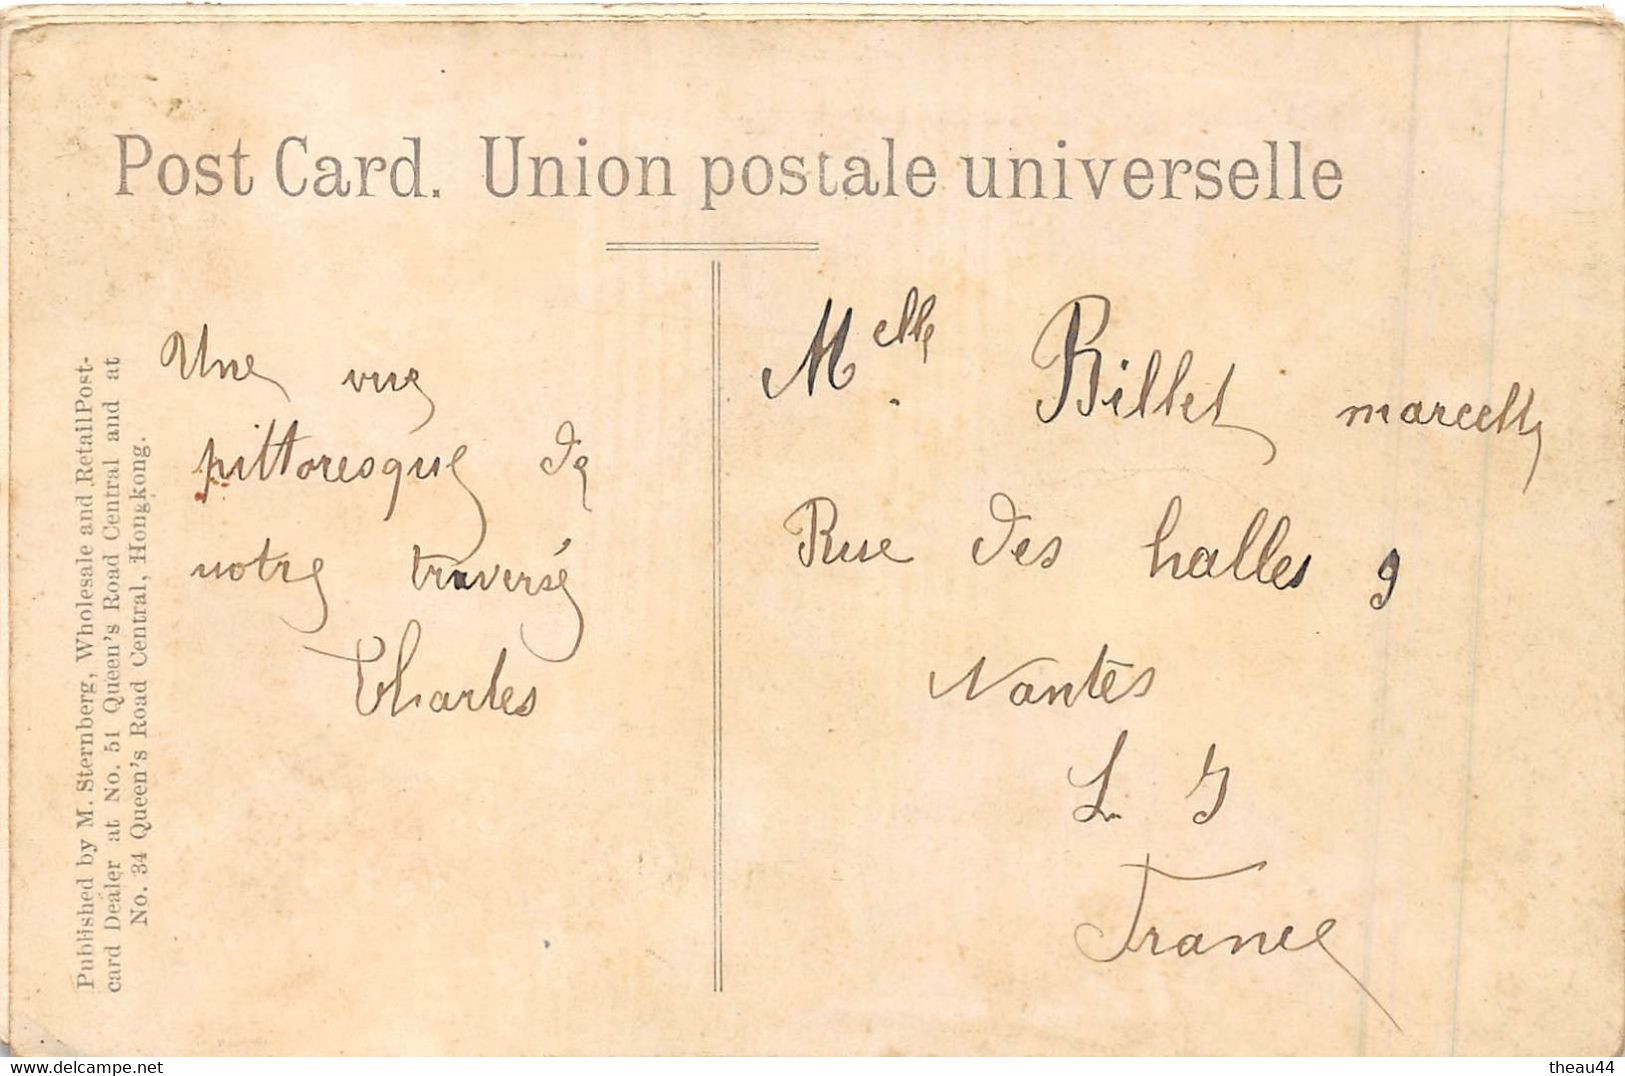 Post Card. Union postale universelle
Published by M. Sternberg, Wholesale and Retail Post-
card Dealer at No. 51 Queen's Road Central and at
No. 34 Queen's Road Central, Hongkong.
Une vue
pittoresque de
notre traversé
Charles
Melle Billet marcelle
Rue des halles 9
Nantes
L I
France
theau44